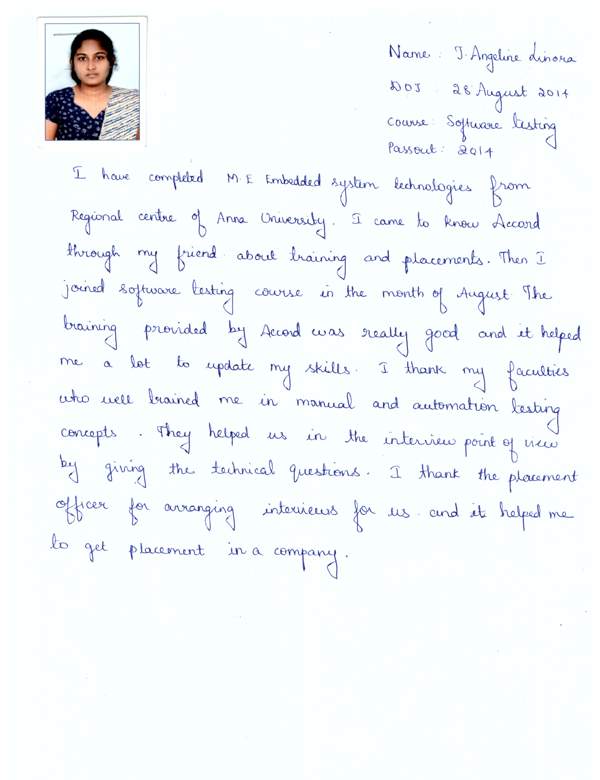 Name : J. Angeline Linora
DOJ : 28 August 2014
Course : Software testing
Passout : 2014
I have completed M.E Embedded system technologies from
Regional centre of Anna University. I came to know Accord
through my friend about training and placements. Then I
joined software testing course in the month of August The
training provided by Accord was really good and it helped
me a lot to update my skills. I thank my faculties
who well trained me in manual and automation testing
concepts . They helped us in the interview point of view
by giving the technical questions. I thank the placement
officer for arranging interviews for us and it helped me
to get placement in a company.